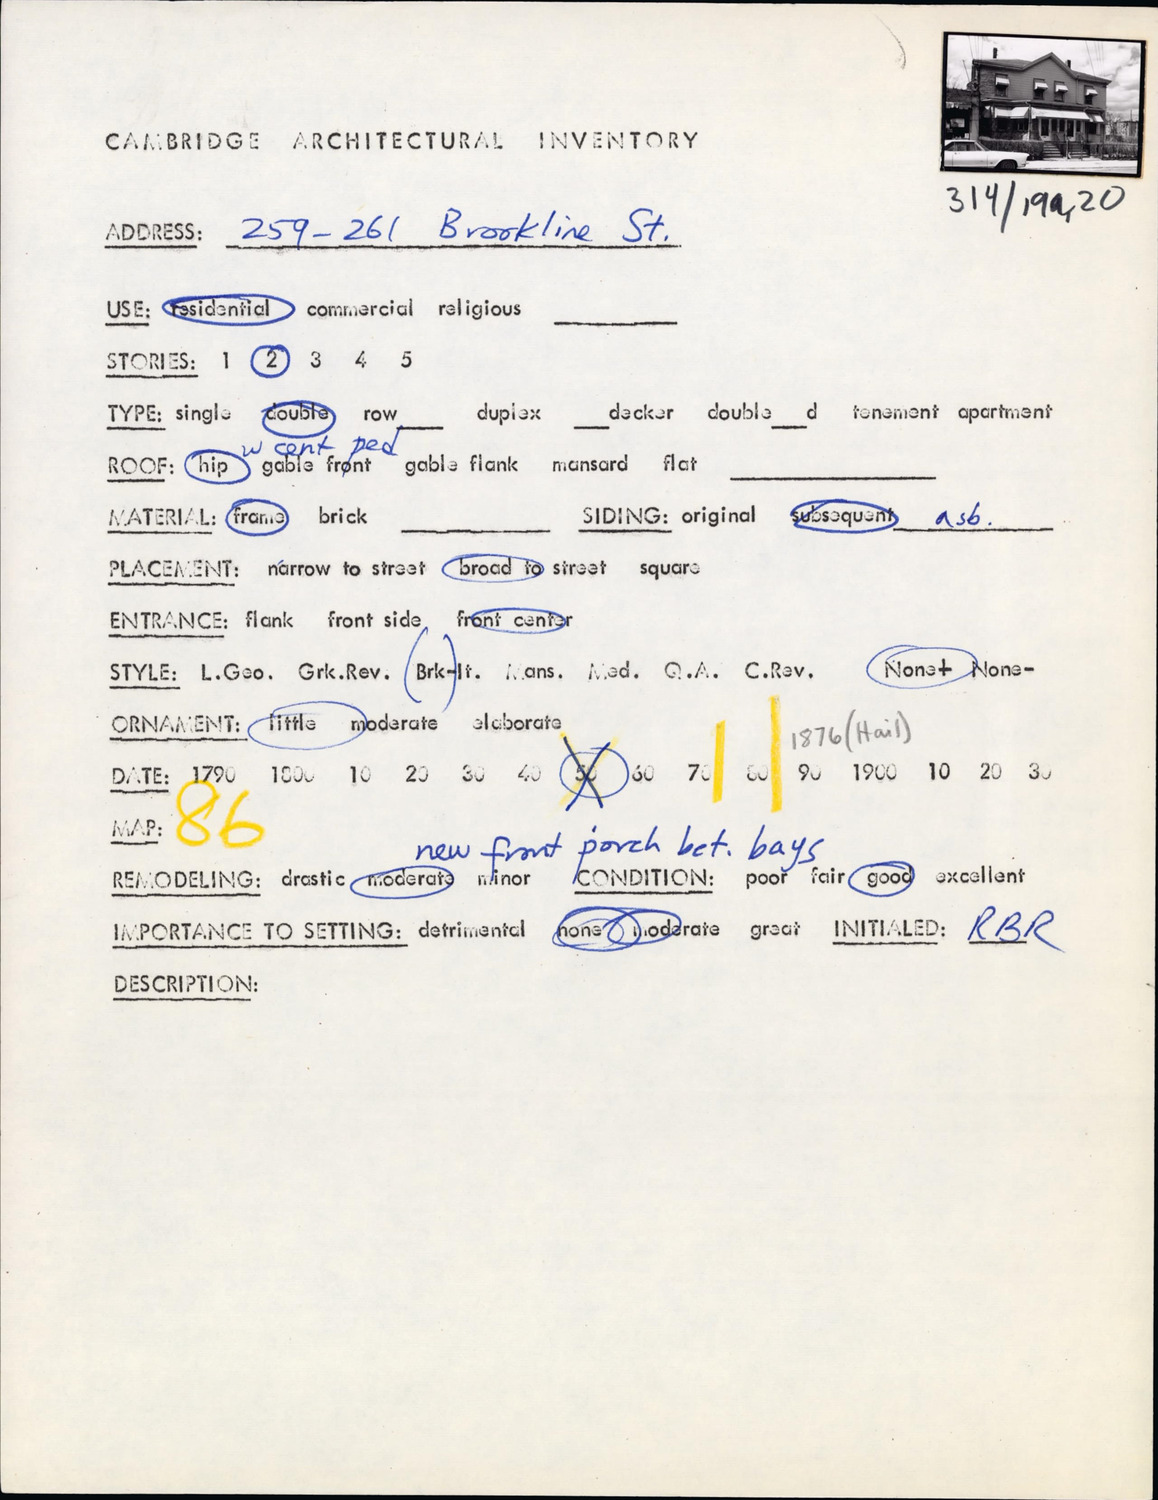 CAMBRIDGE ARCHITECTURAL INVENTORY
314/19a,20
ADDRESS: 259-261 Brookline St.
USE: residential commercial religious
STORIES: 1 2 3 4 5
TYPE: single double row___ duplex ___decker double___d tenement apartment
w cent ped
ROOF: hip gable front gable flank mansard flat
MATERIAL: frame brick SIDING: original subsequent asb.
PLACEMENT: narrow to street broad to street square
ENTRANCE: flank front side front center
STYLE: L.Geo. Grk.Rev. (Brk-)It. Mans. Med. Q.A. C.Rev. None+ None-
ORNAMENT: little moderate elaborate
1876 (Hail)
DATE: 1790 1800 10 20 30 40 50 60 70 80 90 1900 10 20 30
MAP: 86
new front porch bet. bays
REMODELING: drastic moderate minor CONDITION: poor fair good excellent
IMPORTANCE TO SETTING: detrimental none moderate great INITIALED: RBR
DESCRIPTION: